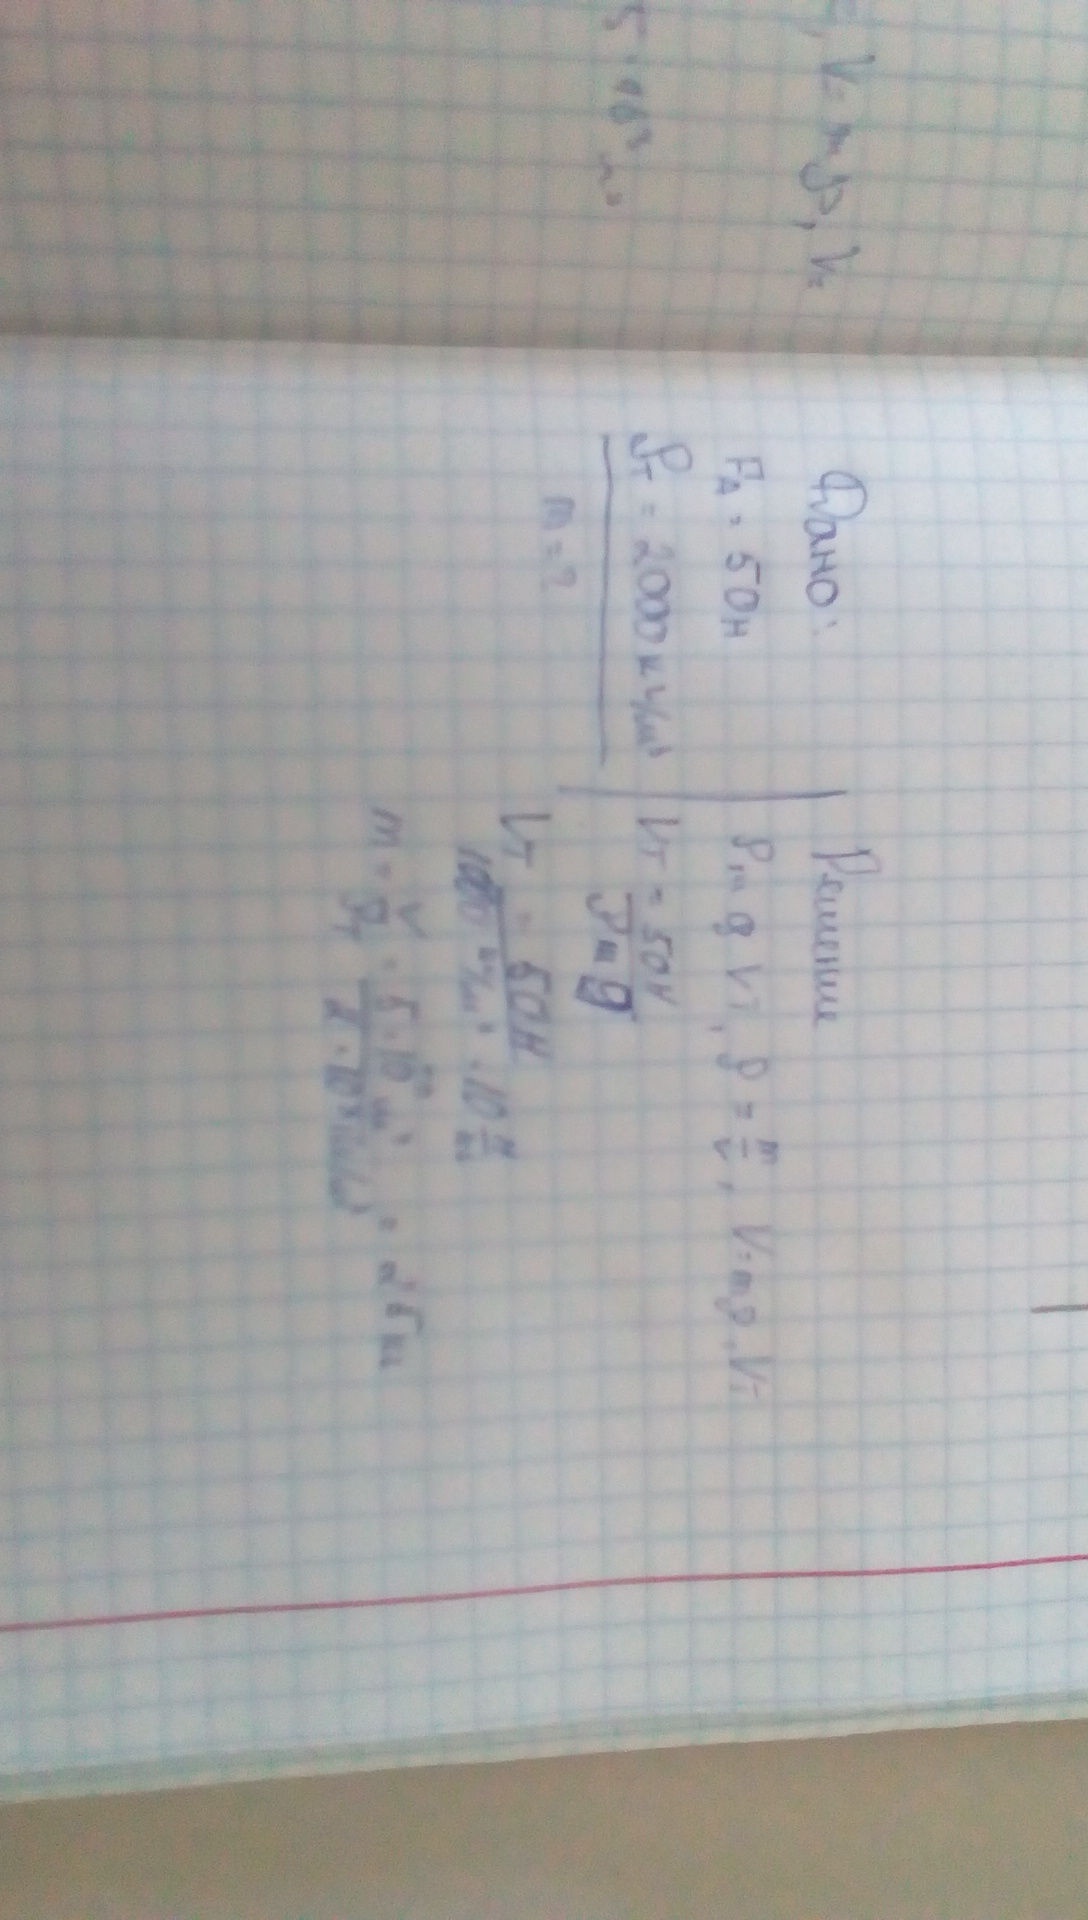 , V = mρ, V₂
5 · 10³
Дано:
F_A = 50н
ρ_т = 2000 кг/м³
m = ?
Решение
ρ_m g V_т, ρ = m/V, V = mρ, V_т
V_т = 50н/ρ_m g
V_т = 50н/1000 кг/м³ · 10 н/кг
m = V/ρ_т = 5 · 10 м³/2 · 10³ кг/м³ =